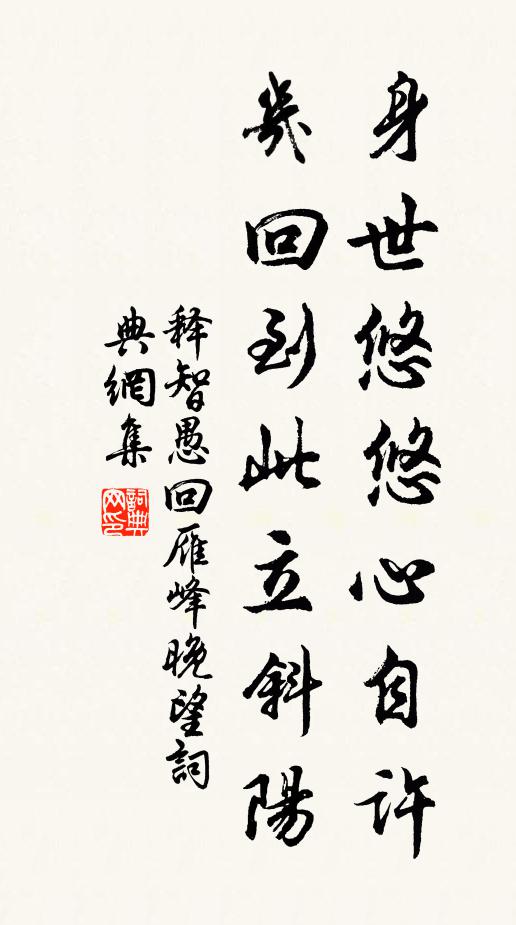 身世悠悠心自許
幾回到此立斜陽
释智愚回雁峰晚望詞
典網集
詞典
网印